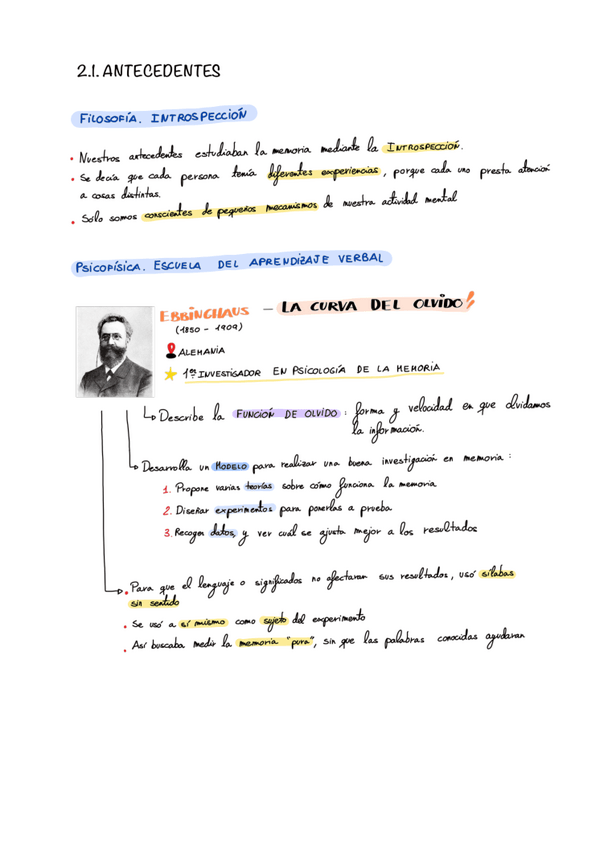 2.1. ANTECEDENTES
FILOSOFÍA. INTROSPECCIÓN
• Nuestros antecedentes estudiaban la memoria mediante la INTROSPECCIÓN.
• Se decía que cada persona tenía diferentes experiencias, porque cada uno presta atención
a cosas distintas.
• Sólo somos conscientes de pequeños mecanismos de nuestra actividad mental
PSICOFÍSICA. ESCUELA DEL APRENDIZAJE VERBAL
EBBINGHAUS – LA CURVA DEL OLVIDO!
(1850 - 1909)
ALEMANIA
1er INVESTIGADOR EN PSICOLOGÍA DE LA MEMORIA
Describe la FUNCIÓN DE OLVIDO: forma y velocidad en que olvidamos
la información.
Desarrolla un MODELO para realizar una buena investigación en memoria:
1. Propone varias teorías sobre cómo funciona la memoria
2. Diseñar experimentos para ponerlas a prueba
3. Recoger datos, y ver cuál se ajusta mejor a los resultados
• Para que el lenguaje o significados no afectaran sus resultados, usó sílabas
sin sentido
• Se usó a sí mismo como sujeto del experimento
• Así buscaba medir la memoria "pura", sin que las palabras conocidas ayudaran